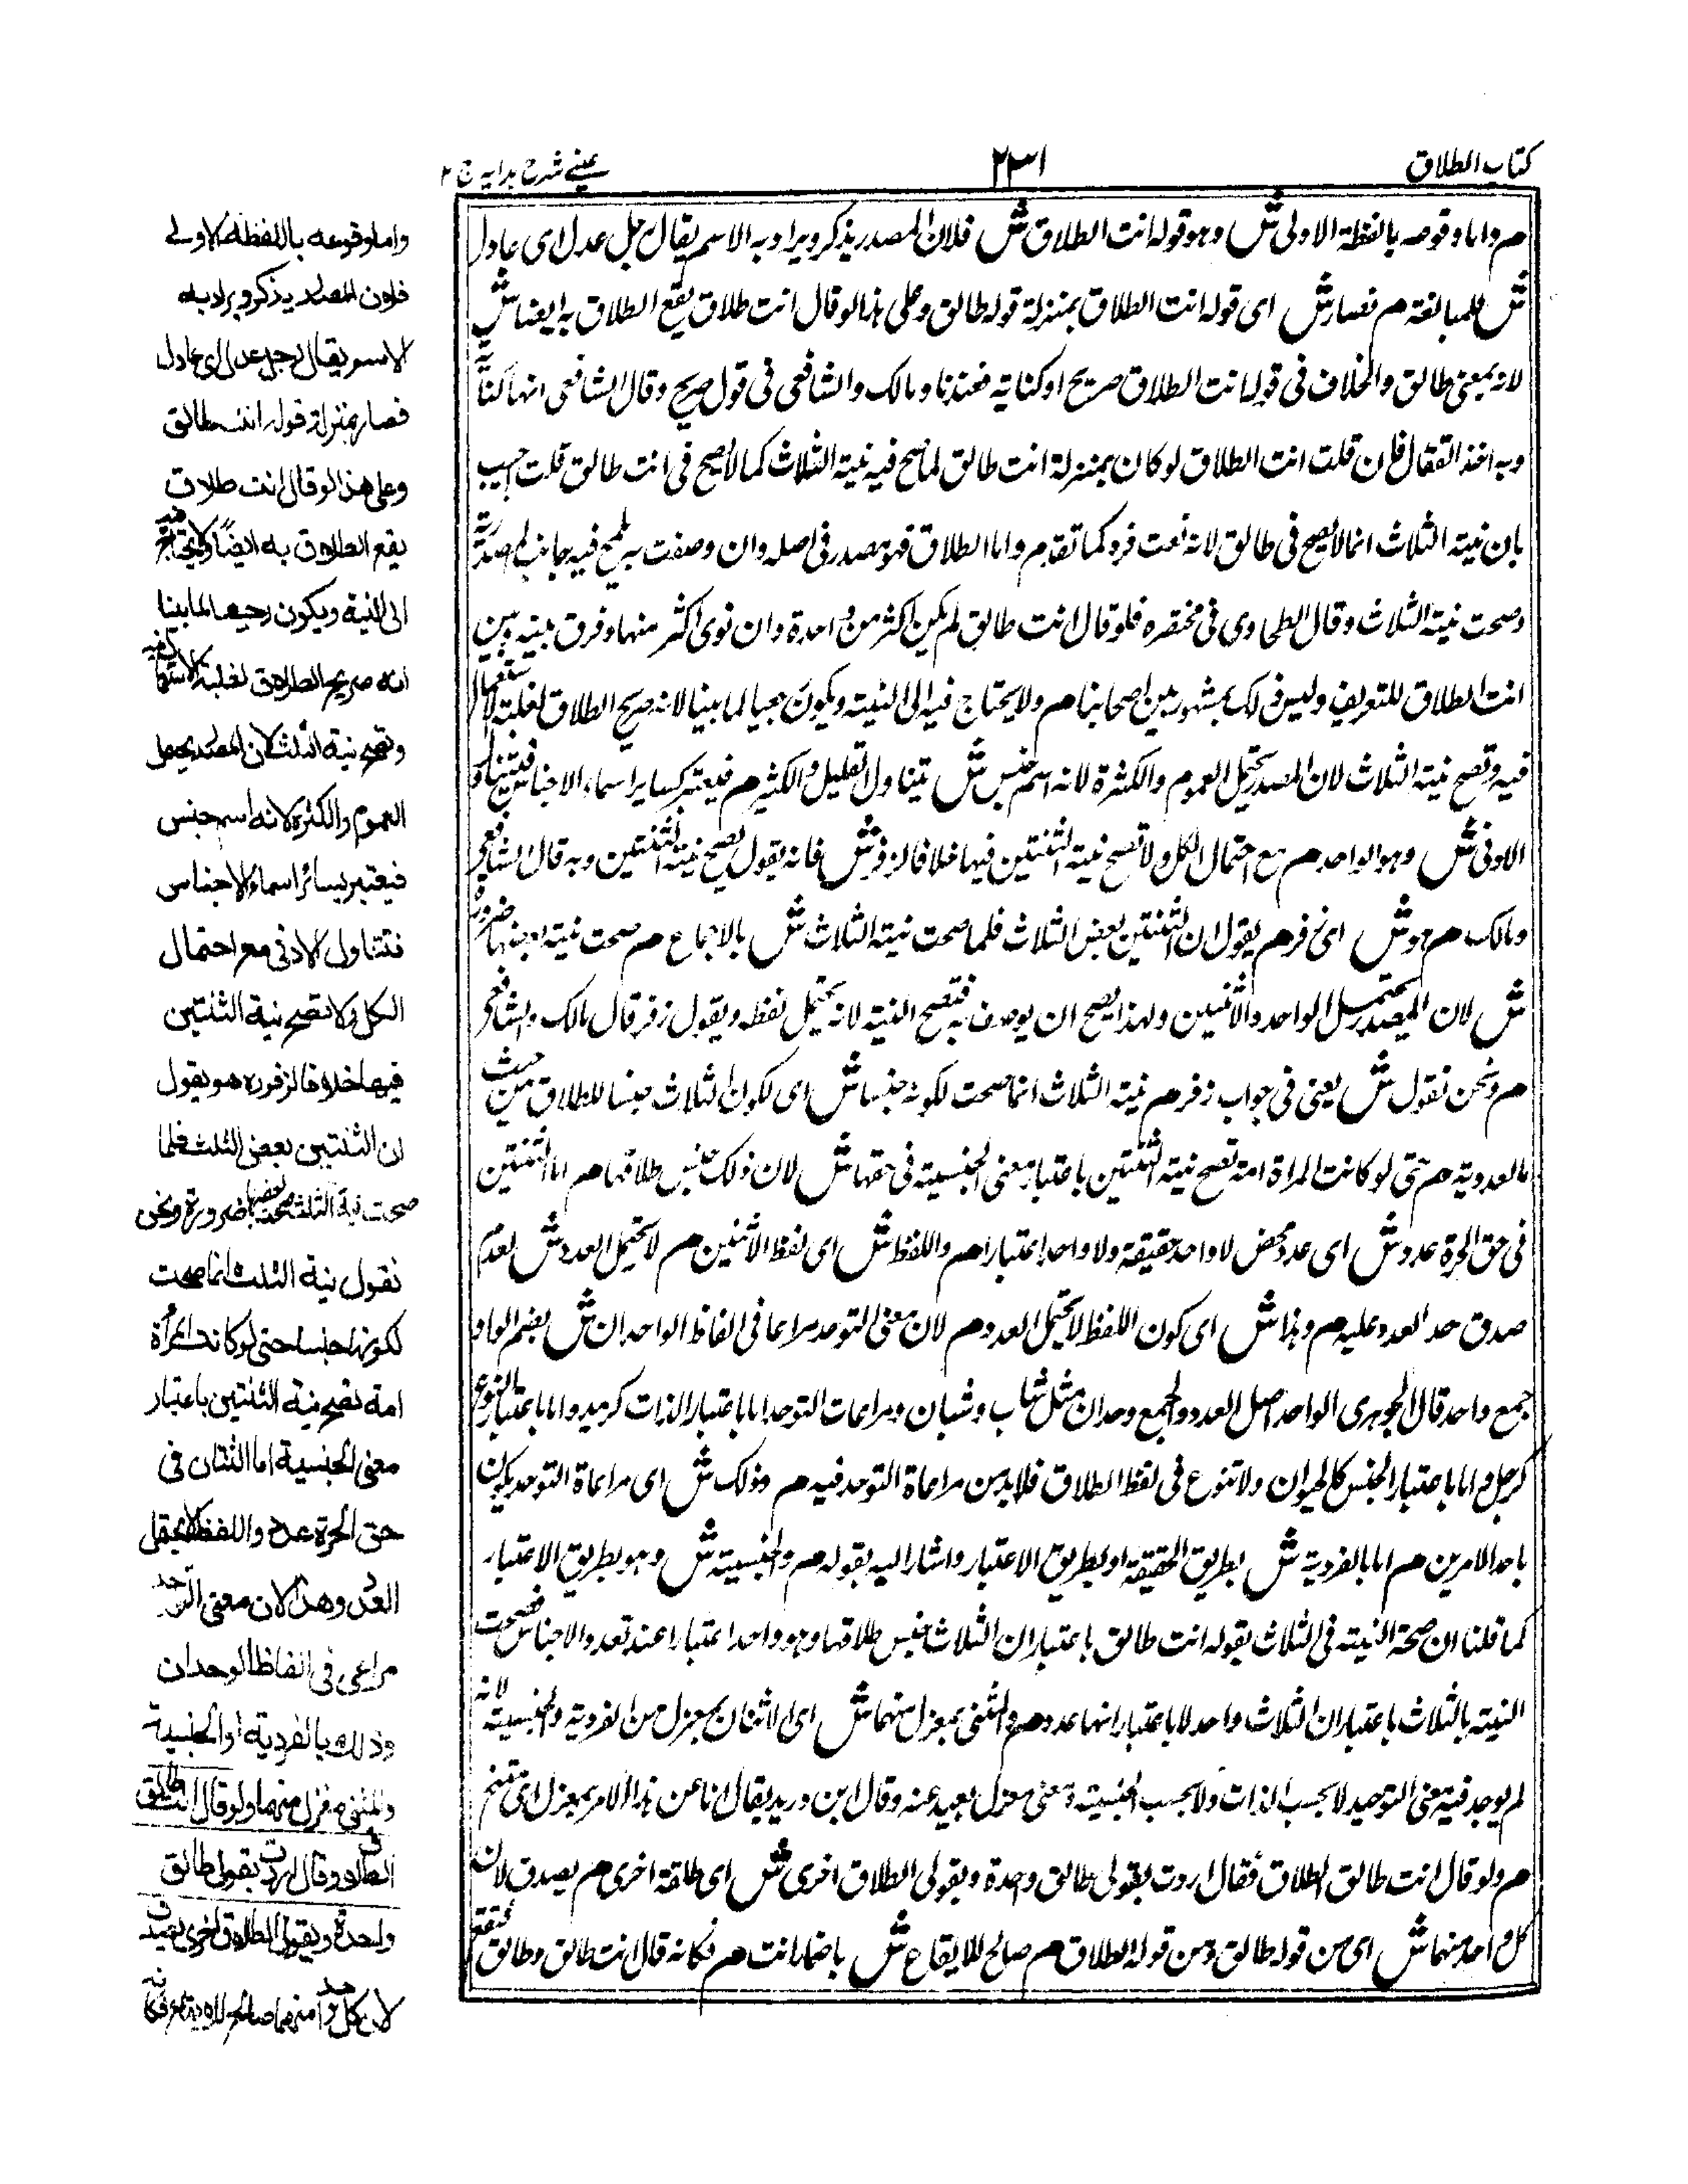 كتاب الطلاق
٢٣١
عيني شرح هدايه ج ٢
م واما وقوعه باللفظة الاولى ش وهو قوله انت الطلاق ش فلان المصدر يذكر ويراد به الاسم يقال رجل عدل اى عادل
ش للمبالغة م فصار ش اى قوله انت الطلاق بمنزلة قوله طالق وعلى هذا لو قال انت طلاق يقع الطلاق به ايضا ش
لانه بمعنى طالق والخلاف فى قوله انت الطلاق صريح او كناية فعندنا ومالك والشافعى فى قول صريح وقال الشافعى انها كناية
وبه اخذ القفال فان قلت انت الطلاق لو كان بمنزلة انت طالق لما صح فيه نية الثلاث كما لا يصح فى انت طالق قلت اجيب
بان نية الثلاث انما لا يصح فى طالق لانه نعت فرد كما تقدم واما الطلاق فهو مصدر فى اصله وان وصفت به يلمح فيه جانب المصدرية
وصحت نية الثلاث وقال الطحاوى فى مختصره فلو قال انت طالق لم يكن اكثر من واحدة وان نوى اكثر منها وفرق بينه وبين
انت الطلاق للتعريف وليس ذلك بمشهور بين اصحابنا م ولا يحتاج فيه الى النية ويكون رجعيا لما بينا لانه صريح الطلاق لغلبة الاستعمال
فيه وتصح نية الثلاث لان المصدر يحتمل العموم والكثرة لانه اسم جنس ش يتناول القليل والكثير م فيعتبر كساير اسماء الاجناس فيتناول
الادنى ش وهو الواحد م مع احتمال الكل ولا تصح نية الثنتين فيها خلافا لزفر ش فانه يقول يصح نية الثنتين وبه قال الشافعى
ومالك م هو ش اى زفر م يقول ان الثنتين بعض الثلاث فلما صحت نية الثلاث ش بالاجماع م صحت نية بعضها ضرورة
ش لان المصدر يحتمل الواحد والاثنين ولهذا يصح ان يوصف به فتصح النية لانه يحتمل لفظه وبقول زفر قال مالك والشافعى
م ونحن نقول ش يعنى فى جواب زفر م نية الثلاث انما صحت لكونه جنسا ش اى لكون الثلاث جنسا للطلاق من حيث
العددية م حتى لو كانت المراة امة تصح نية الثنتين باعتبار معنى الجنسية فى حقها ش لان ذلك جنس طلاقها م اما الثنتين
فى حق الحرة عدد ش اى عدد محض لا واحد حقيقة ولا واحد اعتبارا م واللفظ ش اى لفظ الاثنين م لا يحتمل العدد ش لعدم
صدق حد العدد عليه م وهذا ش اى كون اللفظ لا يحتمل العدد م لان معنى التوحد مراعا فى الفاظ الواحدان ش بضم الواو
جمع واحد قال الجوهرى الواحد اصل العدد والجمع وحدان مثل شاب وشبان ومراعات التوحد اما باعتبار الذات كزيد واما باعتبار النوع
كرجل واما باعتبار الجنس كالحيوان ولا تنوع فى لفظ الطلاق فلا بد من مراعاة التوحد فيه م وذلك ش اى مراعاة التوحد يكون
باحد الامرين م اما بالفردية ش بطريق الحقيقة او بطريق الاعتبار واشار اليه بقوله م والجنسية ش وهو بطريق الاعتبار
كما قلنا ان صحة النية فى الثلاث بقوله انت طالق باعتبار ان الثلاث جنس طلاقها وهو واحد اعتبارا عند تعدد الاجناس فصحت
النية بالثلاث باعتبار ان الثلاث واحد لا باعتبار انها عدد م والمثنى بمعزل منهما ش اى الاثنان بمعزل من الفردية والجنسية لانه
لم يوجد فيه معنى التوحيد لا بحسب الذات ولا بحسب الجنسية معنى معزل بعيد عنه وقال ابن دريد يقال انا عن هذا الامر بمعزل اى
م ولو قال انت طالق الطلاق فقال اردت بقولى طالق واحدة وبقولى الطلاق اخرى ش اى طلقة اخرى م يصدق لان
كل واحد منهما ش اى من قوله طالق ومن قوله الطلاق م صالح للايقاع ش باضمار انت م فكانه قال انت طالق وطالق فتقع
واما وقوعه باللفظة الاولى
فلان المصدر يذكر ويراد به
الاسم يقال رجل عدل اى عادل
فصار بمنزلة قوله انت طالق
وعلى هذا لو قال انت طلاق
يقع الطلاق به ايضاً ولا يحتاج فيه
الى النية ويكون رجعيا لما بينا
انه صريح الطلاق لغلبة الاستعمال فيه
وتصح نية الثلث لان المصدر يحتمل
العموم والكثرة لانه اسم جنس
فيعتبر بسائر اسماء الاجناس
فتتناول الادنى مع احتمال
الكل ولا تصح نية الثنتين
فيها خلافا لزفر رہ هو يقول
ان الثنتين بعض الثلث فلما
صحت نية الثلث صحت نية بعضها ضرورة ونحن
نقول نية الثلث انما صحت
لكونها جنسا حتى لو كانت المرأة
امة تصح نية الثنتين باعتبار
معنى الجنسية اما الثنتان فى
حق الحرة عدد واللفظ لا يحتمل
العدد وهذا لان معنى التوحد
مراعى فى الفاظ الوحدان
وذلك بالفردية او الجنسية
والمثنى بمعزل منهما ولو قال انت طالق
الطلاق وقال اردت بقولى طالق
واحدة وبقولى الطلاق اخرى يصدق
لان كل واحد منهما صالح للايقاع فكانه